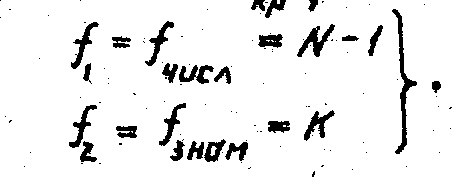 f₁ = f числ = N - 1
f₂ = f знам = K